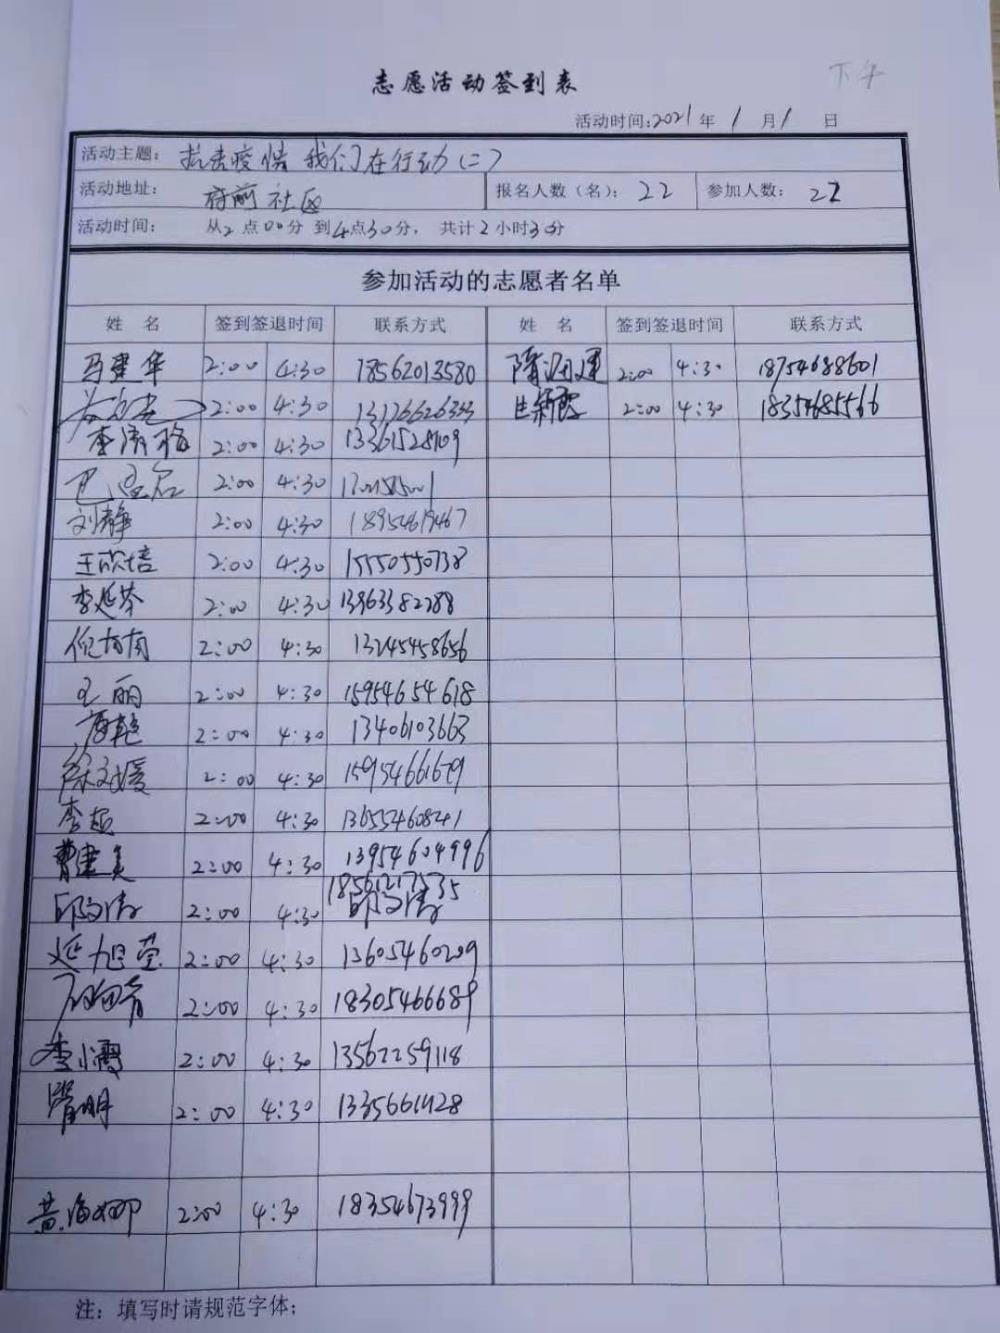 下午
志愿活动签到表
活动时间:2021年1月1日
活动主题: 抗击疫情 我们在行动(二)
活动地址: 府前社区 报名人数(名): 22 参加人数: 22
活动时间: 从2点00分到4点30分, 共计2小时30分
参加活动的志愿者名单
姓 名 签到签退时间 联系方式 姓 名 签到签退时间 联系方式
马建华 2:00 4:30 18562013580 隋 2:00 4:30 18754688601
2:00 4:30 13176626333 2:00 4:30 18354685566
李清梅 2:00 4:30 13361528109
2:00 4:30
刘静 2:00 4:30 18954619467
王欣培 2:00 4:30 15550550738
李延芬 2:00 4:30 13963382288
倪楠楠 2:00 4:30 13245458656
王丽 2:00 4:30 15954654618
2:00 4:30 13406103663
徐文媛 2:00 4:30 15954661679
李超 2:00 4:30 13655460841
曹建美 2:00 4:30 13954604996
邱 2:00 4:30 18561217535
延旭莹 2:00 4:30 13605460209
2:00 4:30 18305466689
李小霞 2:00 4:30 13562259118
隋明 2:00 4:30
黄海娜 2:00 4:30 18354673999
注: 填写时请规范字体;